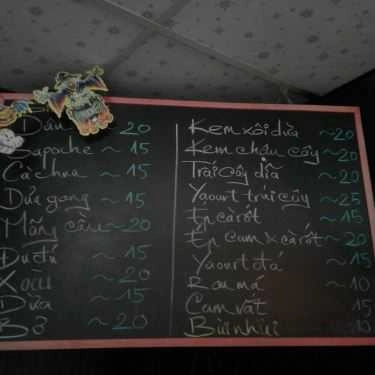 Dâu ~ 20
Sapoche ~ 15
Cà chua ~ 15
Dưa gang ~ 15
Mãng cầu ~ 20
Đu đủ ~ 15
Xoài ~ 20
Dứa ~ 15
Bơ ~ 20
Kem xôi dừa ~ 20
Kem cháu cây ~ 20
Trái cây dĩa ~ 20
Yaourt trái cây ~ 25
Ép cà rốt ~ 15
Ép cam x cà rốt ~ 20
Yaourt đá ~ 15
Rau má ~ 10
Cam vắt 15
10